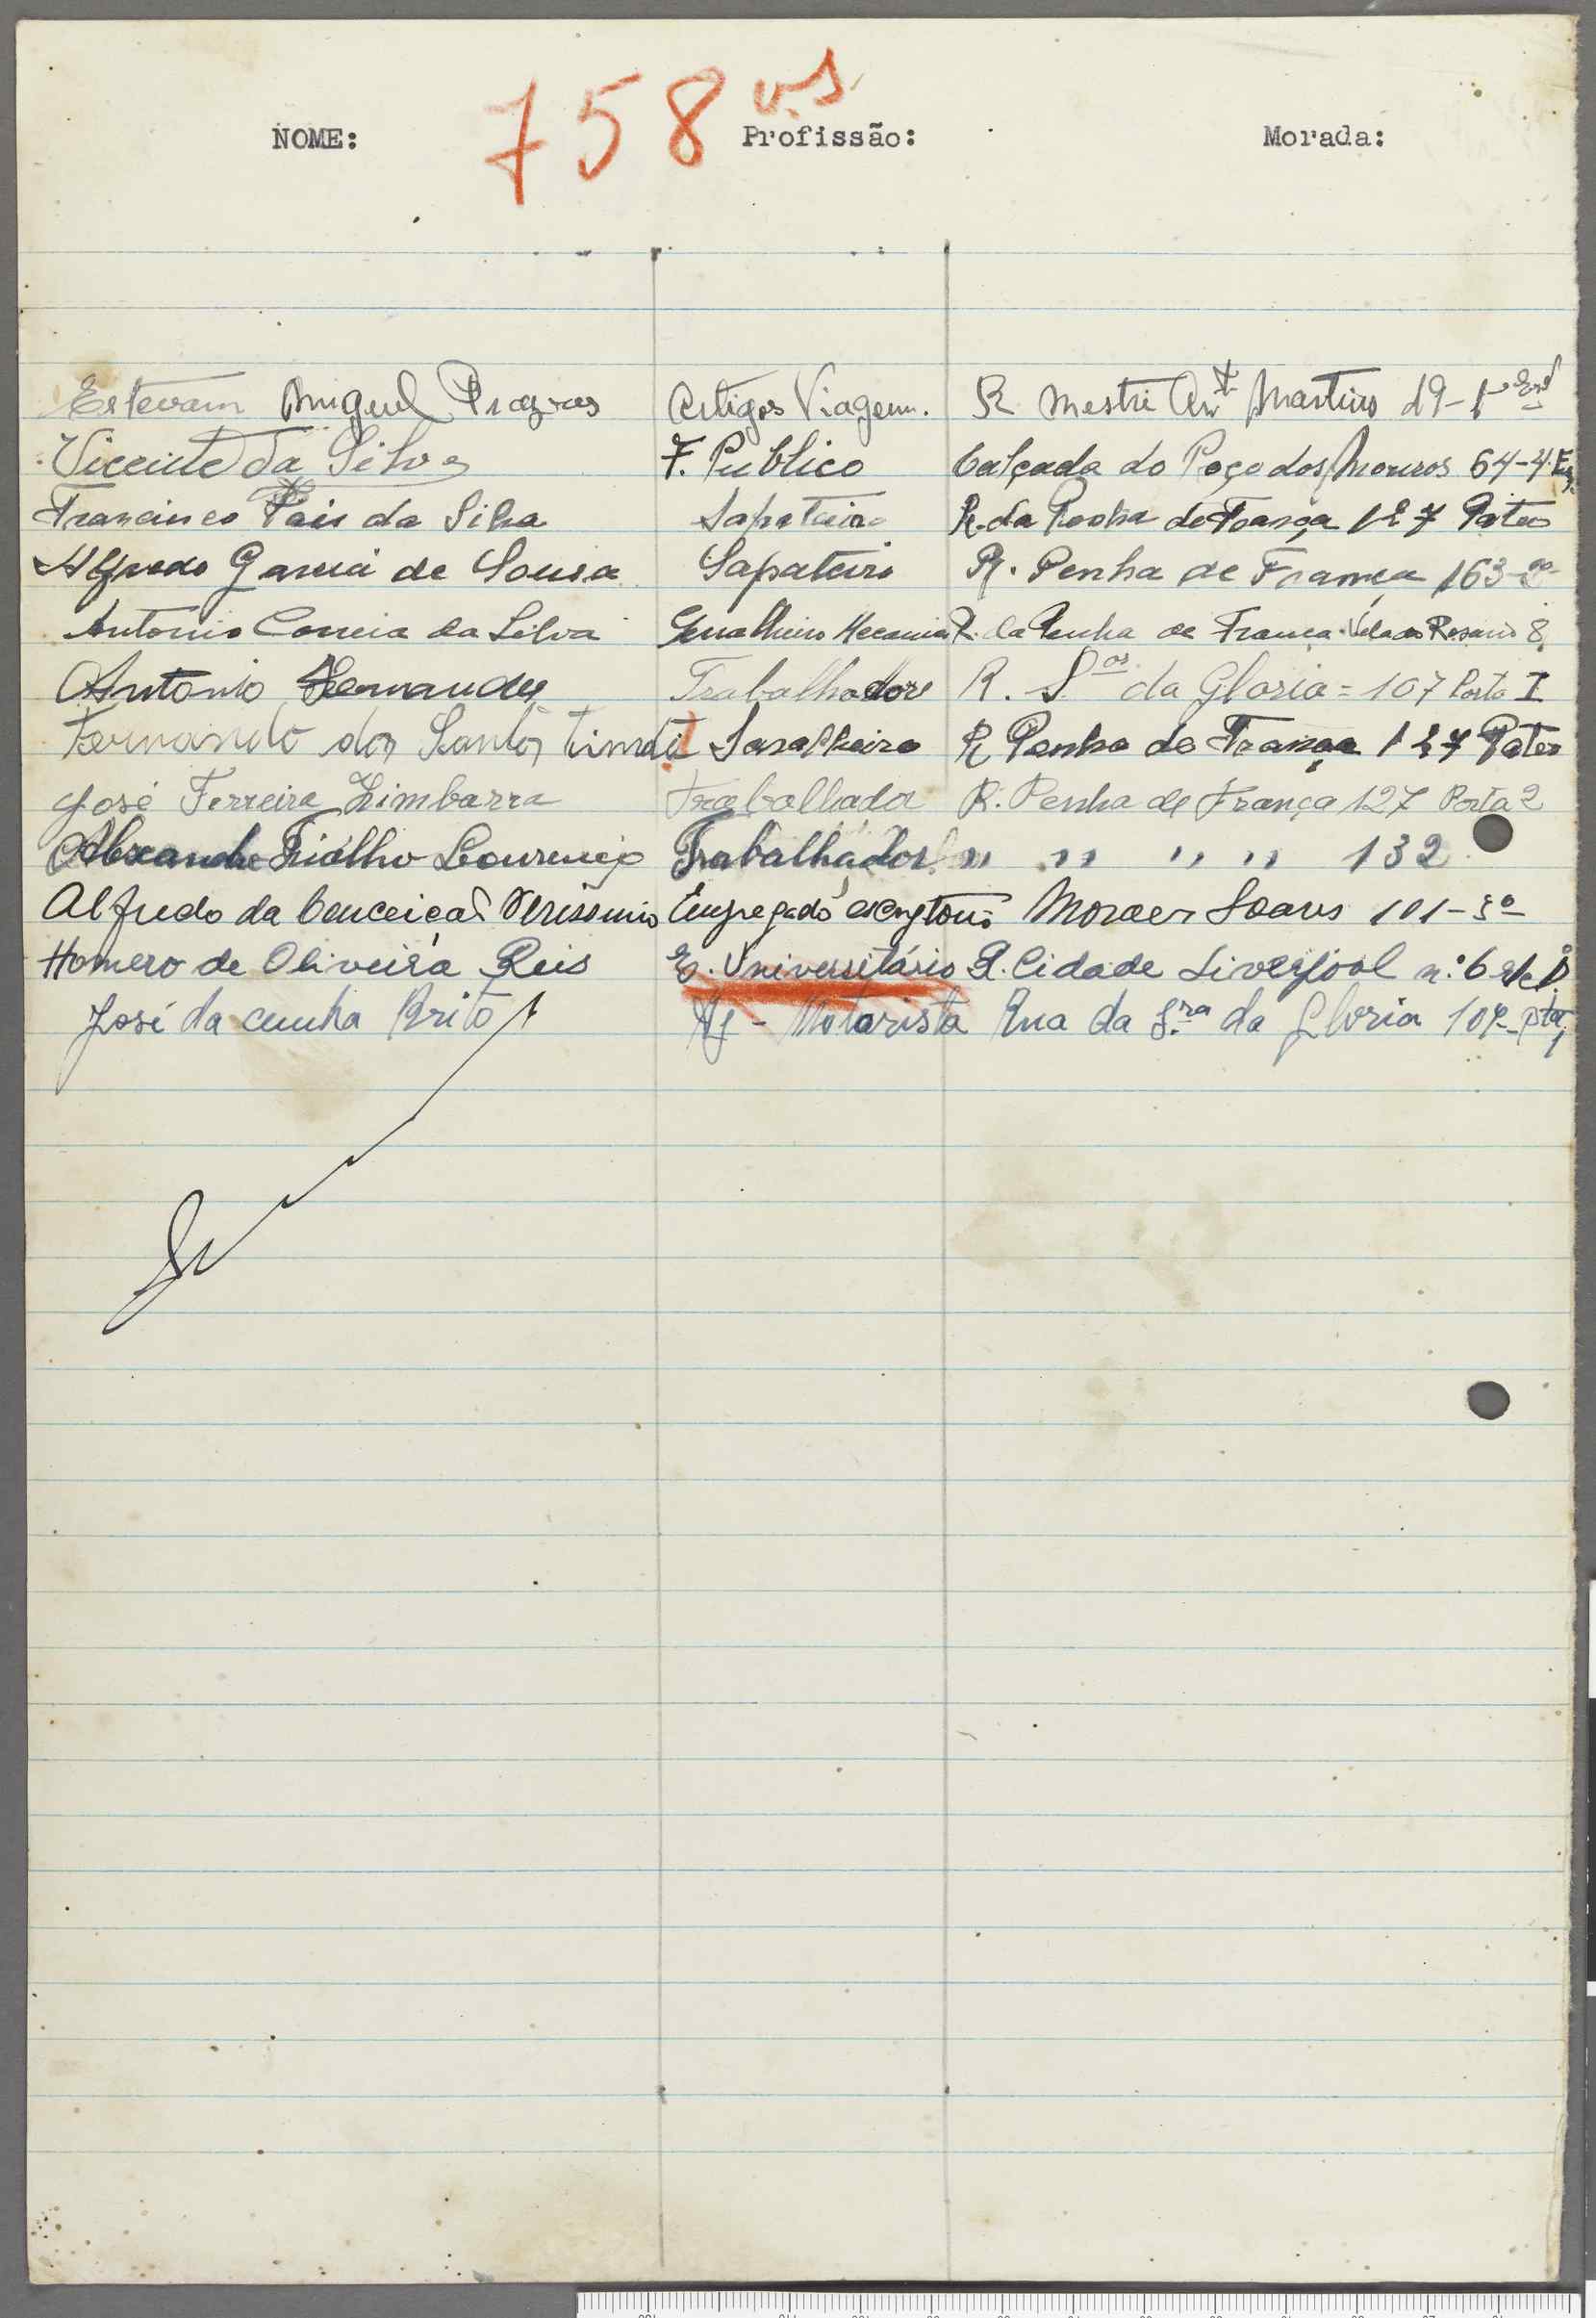 758 vs
NOME: Profissão: Morada:
Estevam Miguel Prazeres Artigos Viagem. R Mestre Ant Martins 19-1º Esq
Vicente da Silva F. Publico Calçada do Poço dos Mouros 64-4 Es
Francisco Pais da Silva Sapateiro R. da Penha de França 127 Pateo
Alfredo Garcia de Sousa Sapateiro R. Penha de França 163
Antonio Correia da Silva Serralheiro Mecanico R. da Penha de França Vila do Rosario 8
Antonio Fernandes Trabalhadore R. S da Gloria = 107 Porta I
Fernando dos Santos Saralheiro R Penha de França 127 Pateo
José Ferreira Zimbarra Trabalhador R. Penha de França 127 Porta 2
Alexandre Fialho Lourenço Trabalhador " " " " 132
Alfredo da Conceição Verissimo Empregado escritorio Moraes Soares 101-3º
Homero de Oliveira Reis E. Universitário R. Cidade Liverpool n.º 6
José da cunha Brito Aj - Motorista Rua da S.ra da Gloria 107- pta 1